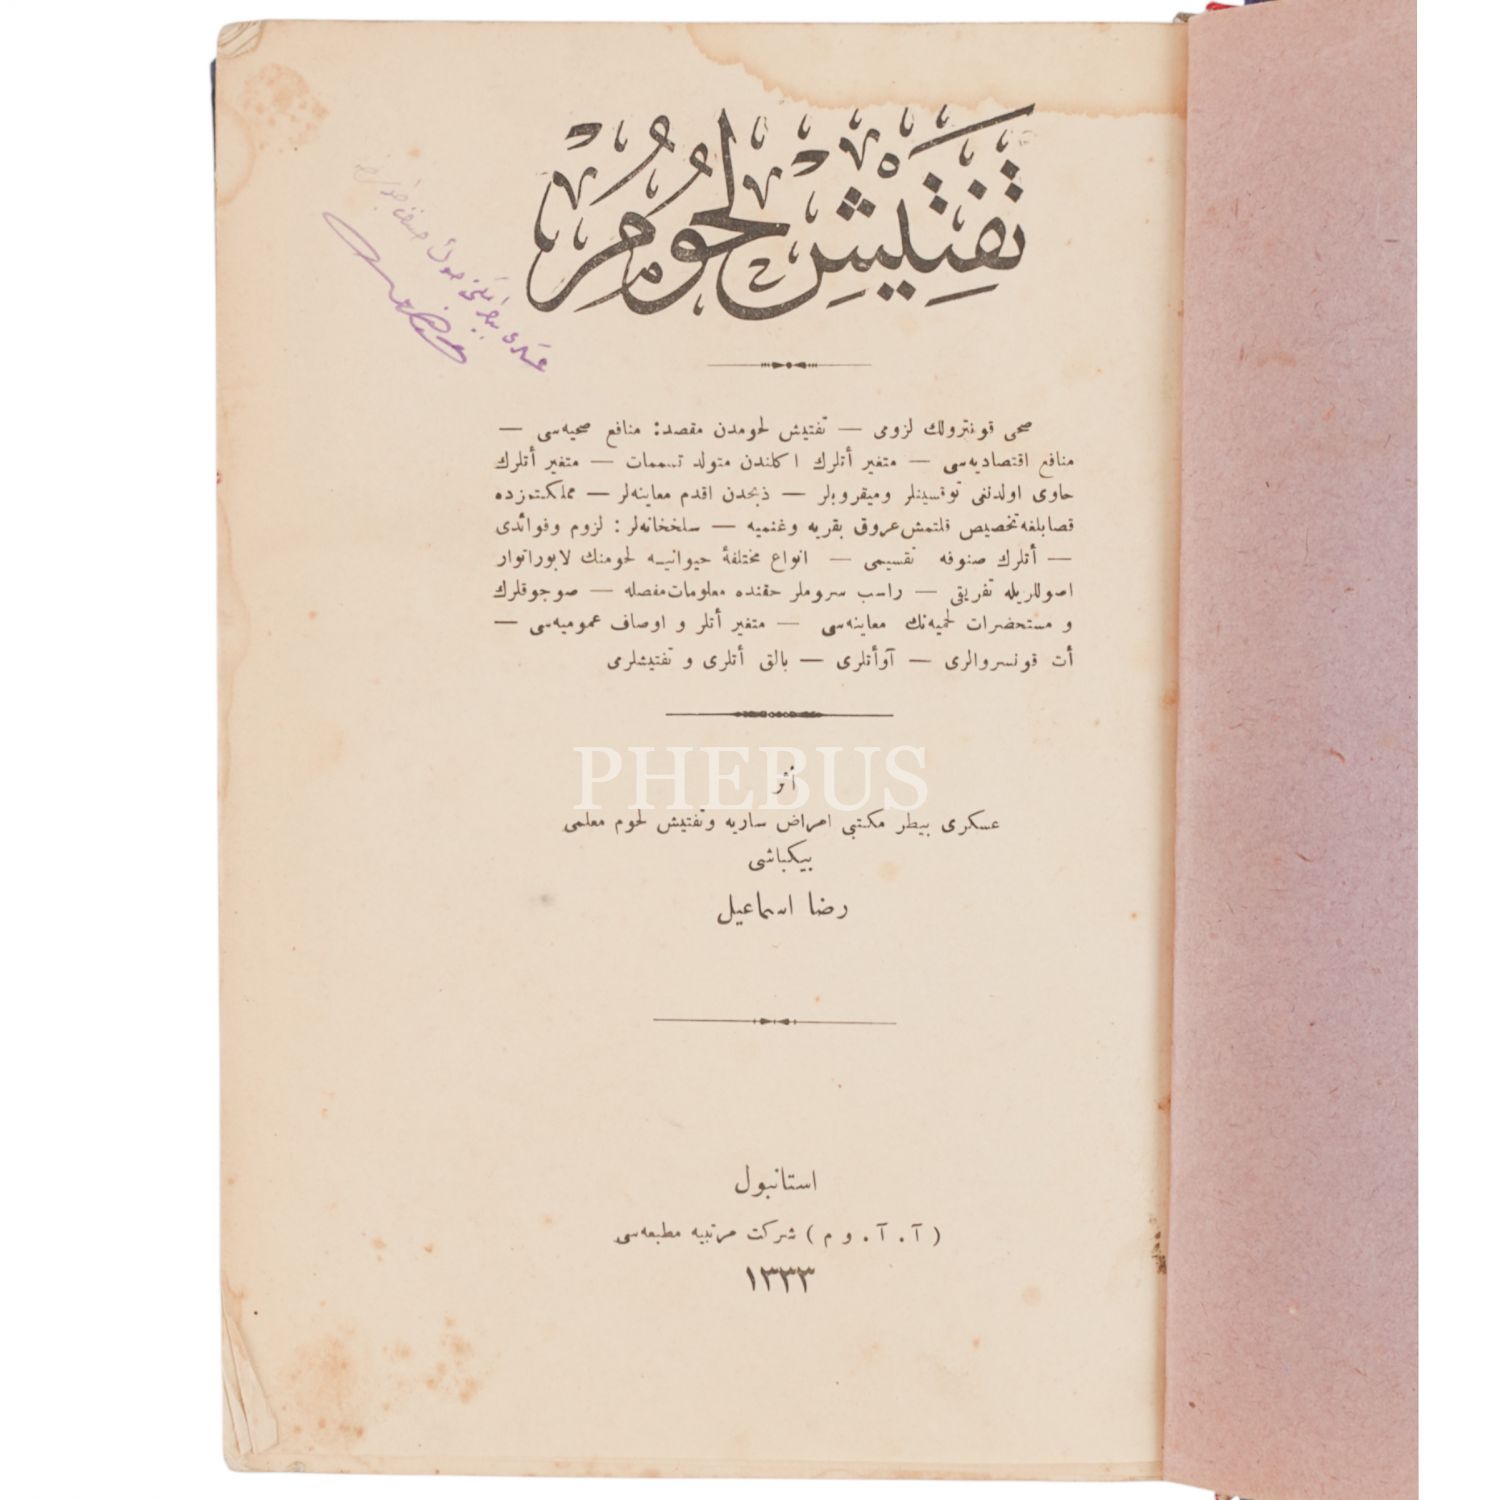 تفتيش لحوم
صحی قونترولك لزومی — تفتيش لحومدن مقصد: منافع صحيه‌سی —
منافع اقتصاديه‌سی — متغير أتلرك اكلندن متولد تسممات — متغير أتلرك
حاوی اولدنغی توقسينلر وميقروبلر — ذبحدن اقدم معاينه‌لر — مملكتمزده
قصابلغه تخصيص قلنمش عروق بقريه وغنميه — سلخخانه‌لر: لزوم وفوائدی
— أتلرك صنوفه تقسيمی — انواع مختلفهٔ حيوانيه لحومنك لابوراتوار
اصوللريله تفريقی — راسب سروملر حقنده معلومات مفصله — صوجوقلرك
و مستحضرات لحميه‌نك معاينه‌سی — متغير أتلر و اوصاف عموميه‌سی —
أت قونسروالری — آو أتلری — بالق أتلری و تفتيشلری
أثر
PHEBUS
عسكری بيطر مكتبی امراض ساريه وتفتيش لحوم معلمی
بيكباشی
رضا اسماعيل
استانبول
( آ. آ. و م ) شركت مرتبيه مطبعه‌سی
١٣٣٣